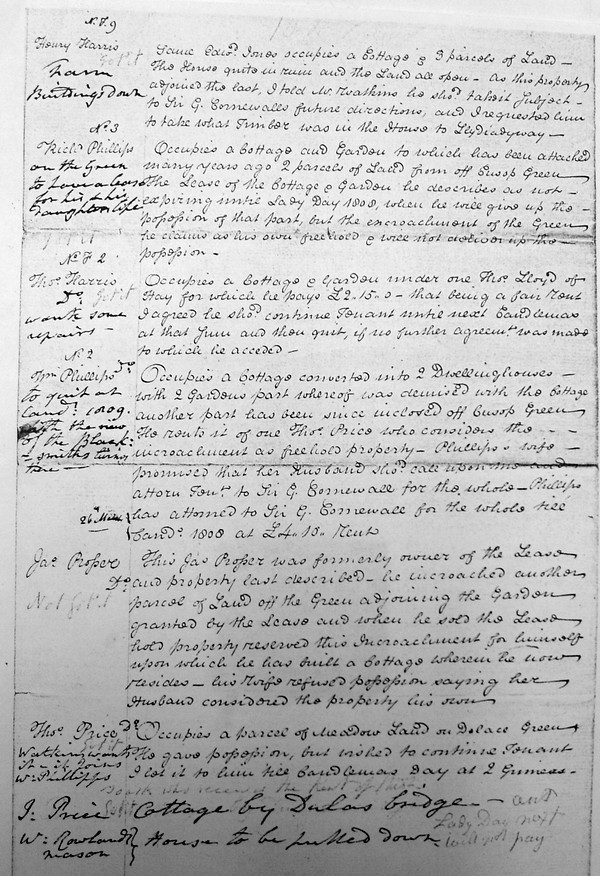 No. F. 9
Henry Harris
Got it
Farm
Buildings down
Same Edwd. Jones occupies a Cottage & 3 parcels of Land -
The House quite in ruin and the Land all open - As this property
adjoined the last, I told Mr. Watkins he shod. take it Subject -
to Sir G. Cornewalls future directions, and I requested him
to take what Timber was in the House to Llydiadyway -
No. 3
Richd. Phillips
on the Green
to have a lease
for his & his
daughters life
Occupies a Cottage and Garden to which has been attached
many years ago 2 parcels of Land from off Cusop Green
The Lease of the Cottage & Garden he describes as not -
expiring until Lady Day 1808, when he will give up the -
possession of that part, but the encroachment of the Green
he claims as his own freehold & will not deliver up the -
possession -
No. F. 2
Thos. Harris
Do. Got it
wants some
repairs -
Occupies a Cottage & Garden under one Thos. Lloyd of
Hay for which he pays £2.15.0 - that being a fair Rent
I agreed he shod. continue Tenant until next Candlemas
at that Sum and then quit, if no further agreemt. was made
to which he acceded -
No. 2
Wm. Phillips Do.
to quit at
Cands. 1809.
with the new
of the Black:
- smiths turng.
there -
Occupies a Cottage converted into 2 Dwellinghouses -
with 2 Gardens part whereof was demised with the Cottage
another part has been since inclosed off Cusop Green
He rents it of one Thos. Price who considers the - -
incroachment as freehold property - Phillips's wife -
promised that her Husband shod. call upon me and
attorn Tent. to Sir G. Cornewall for the whole - Phillips
has attorned to Sir G. Cornewall for the whole till
Cands. 1808 at £4.15. Rent
Jas. Prosser
Do.
Not Got it
This Jas. Prosser was formerly owner of the Lease
and property last described - he incroached another
parcel of Land off the Green adjoining the Garden
granted by the Lease and when he sold the Lease
hold property reserved this Incroachment for himself
upon which he has built a Cottage wherein he now
resides - his Wife refused possession saying her
Husband considered the property his own
Thos. Price Do.
Watkins wants
it - it joins
Wm. Phillips
Occupies a parcel of Meadow Land on Dolace Green
He gave possession, but wished to continue Tenant
I let it to him till Candlemas Day at 2 Guineas -
J: Price Got it Cottage by Dulas bridge -
Wm. Rowlands
mason
House to be pulled down
Lady Day next
will not pay